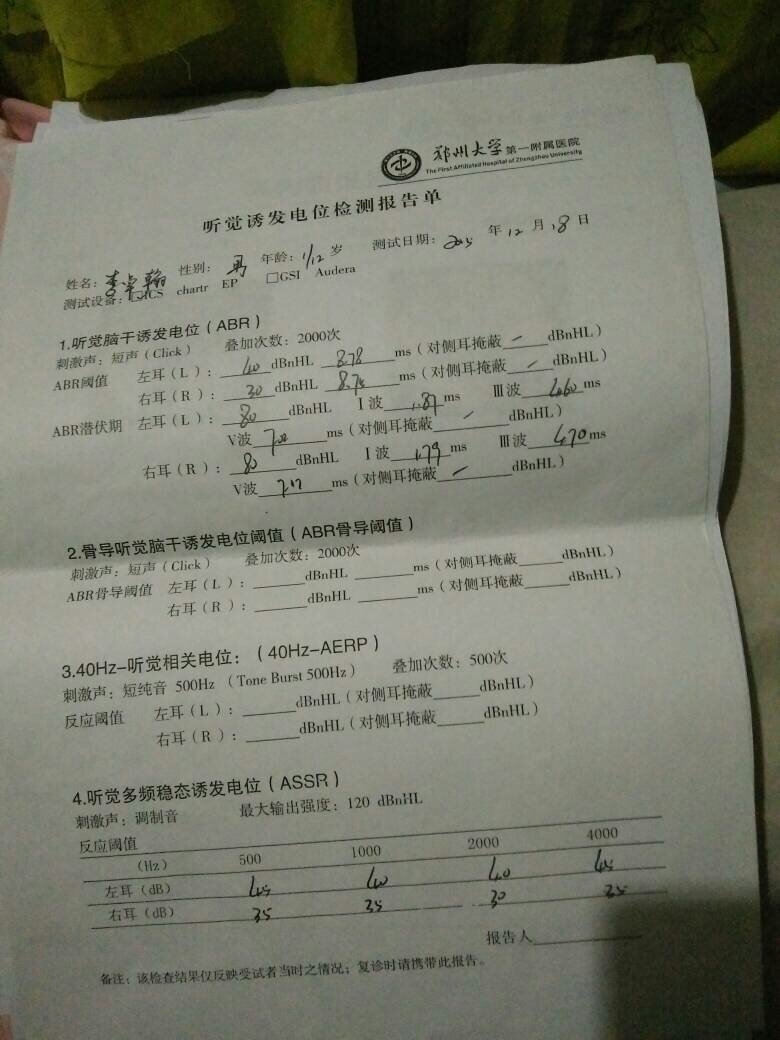 郑州大学 第一附属医院
The First Affiliated Hospital of Zhengzhou University
听觉诱发电位检测报告单
姓名: 李卓翰 性别: 男 年龄: 1/12 岁 测试日期: 2015 年 12 月 18 日
测试设备: ICS chartr EP □GSI Audera
1.听觉脑干诱发电位(ABR)
刺激声: 短声(Click) 叠加次数: 2000次
ABR阈值 左耳(L): 40 dBnHL 8.78 ms(对侧耳掩蔽 — dBnHL)
右耳(R): 30 dBnHL 8.75 ms(对侧耳掩蔽 — dBnHL)
ABR潜伏期 左耳(L): 80 dBnHL I波 1.87 ms III波 4.60 ms
V波 7.00 ms(对侧耳掩蔽 — dBnHL)
右耳(R): 80 dBnHL I波 1.79 ms III波 4.70 ms
V波 7.17 ms(对侧耳掩蔽 — dBnHL)
2.骨导听觉脑干诱发电位阈值(ABR骨导阈值)
刺激声: 短声(Click) 叠加次数: 2000次
ABR骨导阈值 左耳(L): ______dBnHL ______ms(对侧耳掩蔽______dBnHL)
右耳(R): ______dBnHL ______ms(对侧耳掩蔽______dBnHL)
3.40Hz-听觉相关电位: (40Hz-AERP)
刺激声: 短纯音 500Hz (Tone Burst 500Hz) 叠加次数: 500次
反应阈值 左耳(L): ______dBnHL(对侧耳掩蔽______dBnHL)
右耳(R): ______dBnHL(对侧耳掩蔽______dBnHL)
4.听觉多频稳态诱发电位(ASSR)
刺激声: 调制音 最大输出强度: 120 dBnHL
反应阈值
(Hz) 500 1000 2000 4000
左耳(dB) 45 40 40 45
右耳(dB) 35 35 30 35
报告人
备注: 该检查结果仅反映受试者当时之情况; 复诊时请携带此报告。